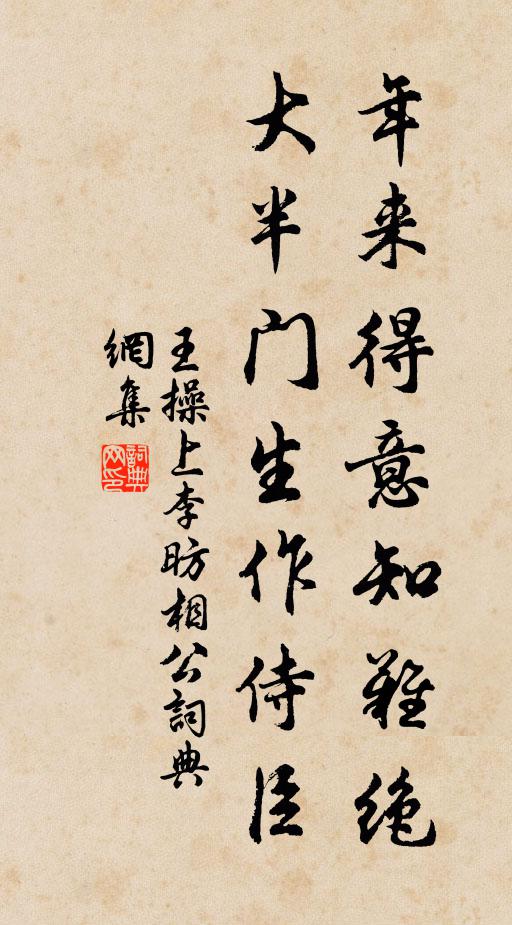 年来得意知難絶
大半门生作侍臣
王操上李昉相公詞典
網集
詞典网印